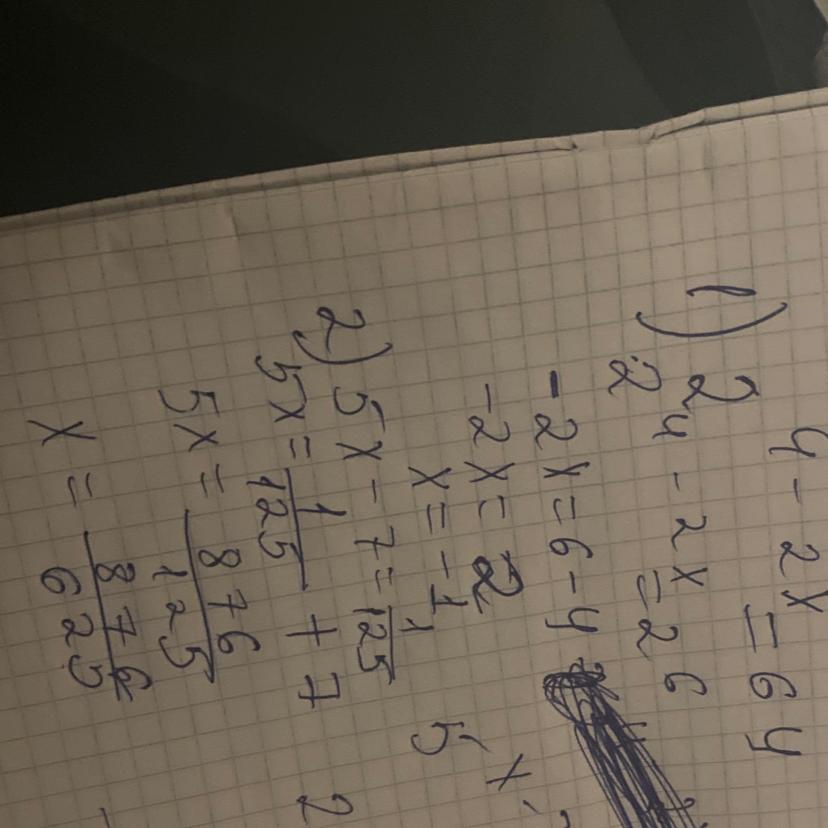 1) 2^{4-2x} = 64
2^{4-2x} = 2^6
-2x = 6-4
-2x = 2
x = -1
2) 5x - 7 = 1/125
5x = 1/125 + 7
5x = 876/125
x = 876/625